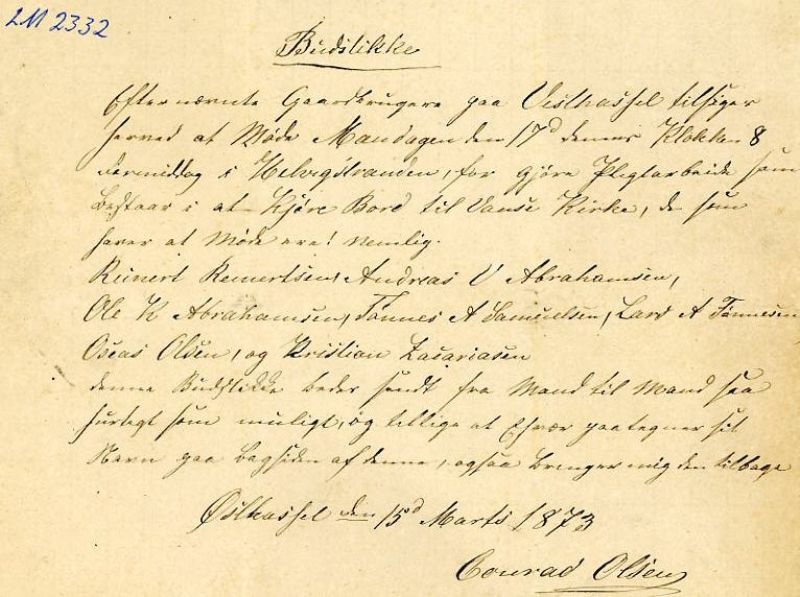 LM 2332
Budstikke
Efternævnte Gaardbrugere paa Vesthassel tilsiges
herved at Møde Mandagen den 17d dennes Klokken 8
Formiddag i Helvigstranden, for gjøre Pligtarbeide som
bestaar i at Kjøre Bord til Vanse Kirke, de som
haver at Møde ere! nemlig.
Reinert Reinertsen, Andreas V Abrahamsen,
Ole K Abrahamsen, Tønnes A Samuelsen, Lars A Tønnesen
Oseas Olsen, og Kristian Zasariasen
denne Budstikke bedes sendt fra Mand til Mand saa
hurtigt som muligt, og tillige at Ehvær paategner sit
Navn paa bagsiden af denne, ogsaa bringes mig den tilbage
Østhassel den 15d Marts 1873
Conrad Olsen